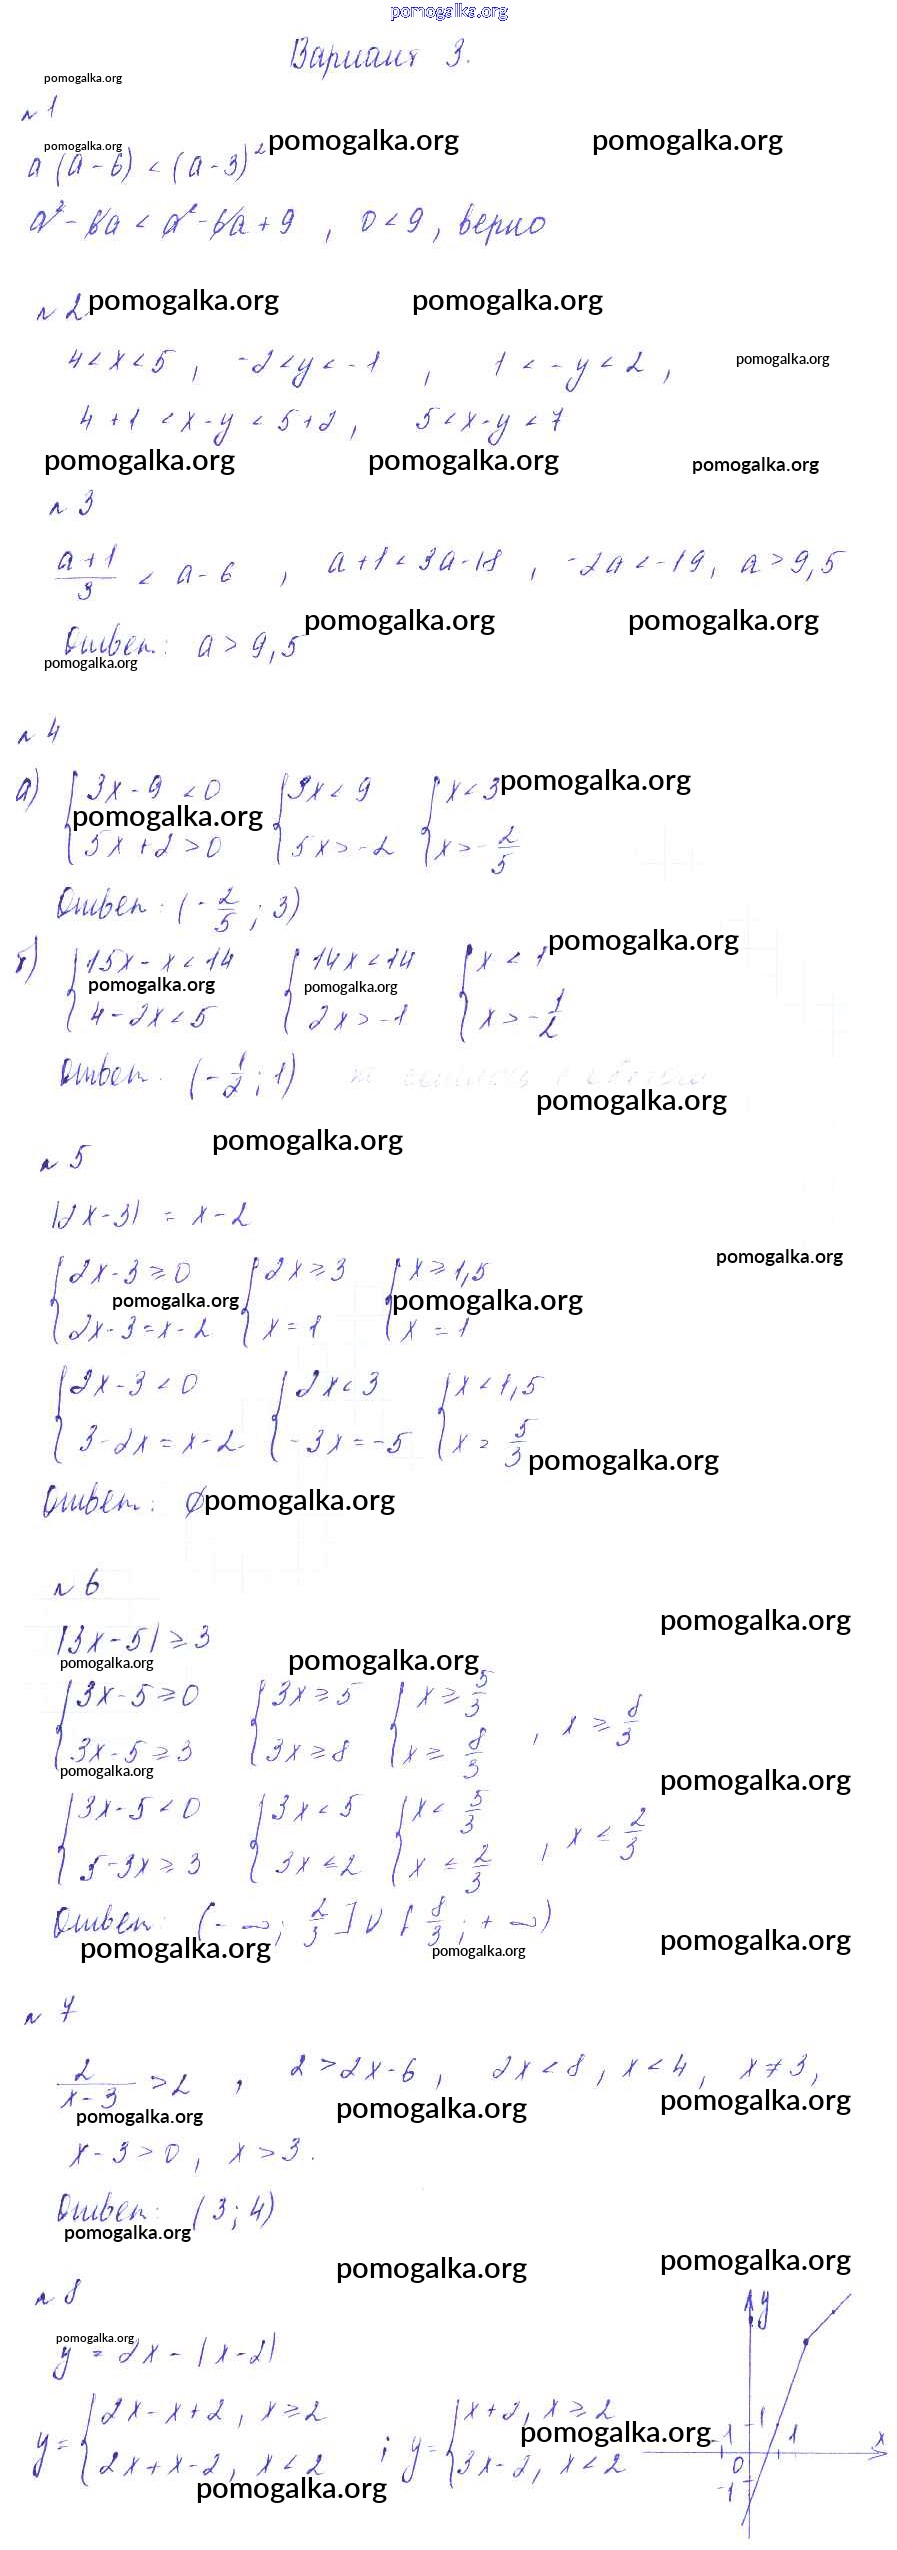 pomogalka.org
Вариант 3.
pomogalka.org
№ 1
pomogalka.org pomogalka.org pomogalka.org
a (a - 6) < (a - 3)²
a² - 6a < a² - 6a + 9 , 0 < 9 , верно
№ 2 pomogalka.org pomogalka.org
4 < x < 5 , -2 < y < -1 , 1 < -y < 2 , pomogalka.org
4 + 1 < x - y < 5 + 2 , 5 < x - y < 7
pomogalka.org pomogalka.org pomogalka.org
№ 3
(a + 1)/3 < a - 6 , a + 1 < 3a - 18 , -2a < -19 , a > 9,5
pomogalka.org pomogalka.org
Ответ: a > 9,5
pomogalka.org
№ 4
а) { 3x - 9 < 0 { 3x < 9 { x < 3 pomogalka.org
pomogalka.org
5x + 2 > 0 5x > -2 x > -2/5
Ответ: (-2/5 ; 3)
б) { 15x - x < 14 { 14x < 14 { x < 1 pomogalka.org
pomogalka.org pomogalka.org
4 - 2x < 5 2x > -1 x > -1/2
Ответ. (-1/2 ; 1)
pomogalka.org
pomogalka.org
№ 5
|2x - 3| = x - 2
pomogalka.org
{ 2x - 3 ≥ 0 { 2x ≥ 3 { x ≥ 1,5
pomogalka.org pomogalka.org
2x - 3 = x - 2 x = 1 x = 1
{ 2x - 3 < 0 { 2x < 3 { x < 1,5
3 - 2x = x - 2 -3x = -5 x = 5/3 pomogalka.org
Ответ: ∅ pomogalka.org
№ 6
pomogalka.org
|3x - 5| ≥ 3
pomogalka.org pomogalka.org
{ 3x - 5 ≥ 0 { 3x ≥ 5 { x ≥ 5/3
3x - 5 ≥ 3 3x ≥ 8 x ≥ 8/3 , x ≥ 8/3
pomogalka.org pomogalka.org
{ 3x - 5 < 0 { 3x < 5 { x < 5/3
5 - 3x ≥ 3 3x ≤ 2 x ≤ 2/3 , x ≤ 2/3
Ответ: (-∞; 2/3] U [8/3 ; +∞)
pomogalka.org pomogalka.org pomogalka.org
№ 7
2/(x - 3) > 2 , 2 > 2x - 6 , 2x < 8 , x < 4 , x ≠ 3 ,
pomogalka.org pomogalka.org pomogalka.org
x - 3 > 0 , x > 3 .
Ответ: (3 ; 4)
pomogalka.org
pomogalka.org pomogalka.org
№ 8
y
pomogalka.org
y = 2x - |x - 2|
y = { 2x - x + 2 , x ≥ 2 ; y = { x + 2 , x ≥ 2
pomogalka.org -1 1 1 x
2x + x - 2 , x < 2 3x - 2 , x < 2 0
pomogalka.org -1